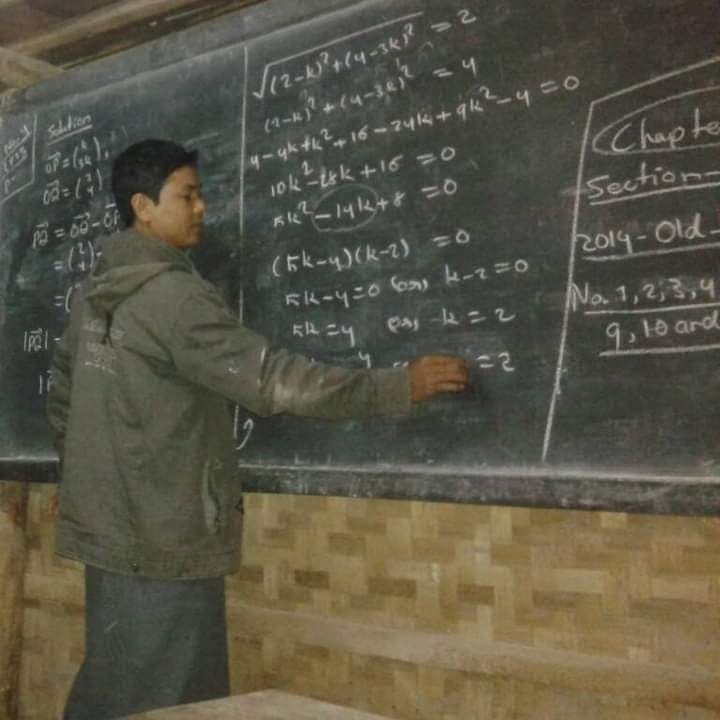 Solution
OP = (k 3k),
OQ = (2 4)
PQ = OQ - OP
= (2 4) -
= (
|PQ| =
√(2-k)² + (4-3k)² = 2
(2-k)² + (4-3k)² = 4
4-4k+k² + 16 - 24k + 9k² - 4 = 0
10k² - 28k + 16 = 0
5k² - 14k + 8 = 0
(5k-4)(k-2) = 0
5k-4=0 (or) k-2=0
5k = 4 (or) k = 2
4 = 2
Chapte
Section-
2014-Old-
No. 1, 2, 3, 4
9, 10 and